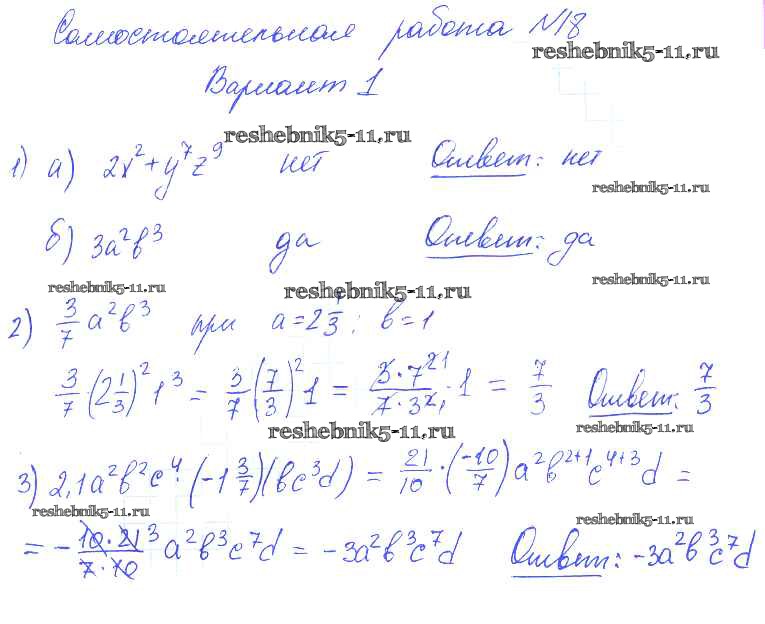 Самостоятельная работа №18
reshebnik5-11.ru
Вариант 1
reshebnik5-11.ru
1) а) 2x² + y⁷z⁹ нет Ответ: нет
reshebnik5-11.ru
б) 3a²b³ да Ответ: да
reshebnik5-11.ru reshebnik5-11.ru reshebnik5-11.ru
2) 3/7 a²b³ при a = 2 1/3; b = 1
3/7 (2 1/3)² 1³ = 3/7 (7/3)² 1 = 3·7²¹/7·3² ₁ · 1 = 7/3 Ответ: 7/3
reshebnik5-11.ru reshebnik5-11.ru
3) 2,1a²b²c⁴·(-1 3/7)(bc³d) = 21/10 · (-10/7) a²b²⁺¹c⁴⁺³d =
reshebnik5-11.ru reshebnik5-11.ru
= - 10·21³/7·10 a²b³c⁷d = -3a²b³c⁷d Ответ: -3a²b³c⁷d